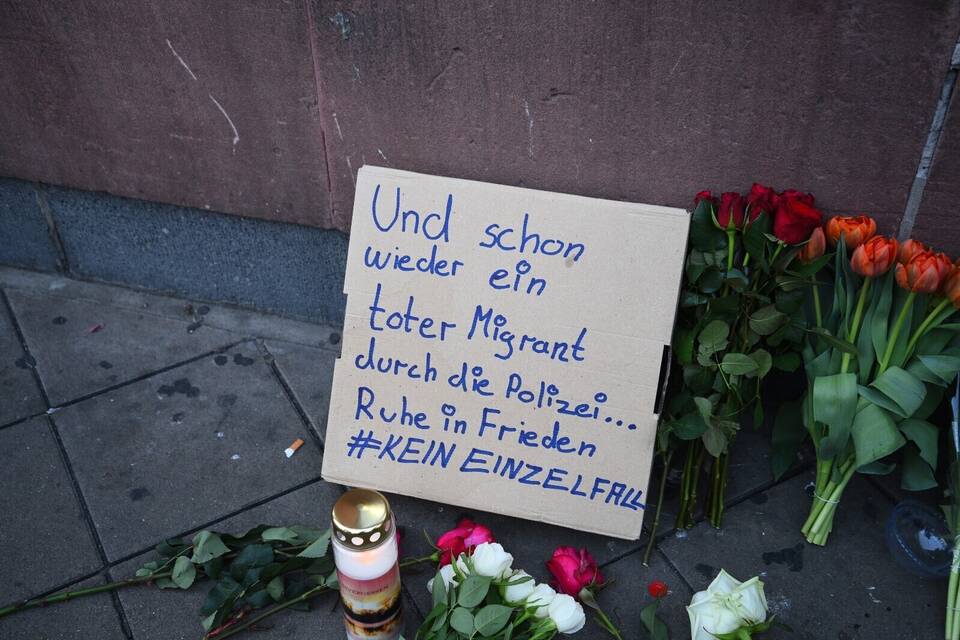 Und schon
wieder ein
toter Migrant
durch die Polizei...
Ruhe in Frieden
#KEIN EINZELFALL